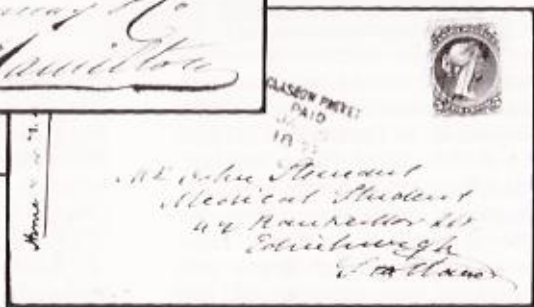 Hamilton
GLASGOW PACKET
PAID
18
Mr John Stewart
Medical Student
44 Rankeillor St
Edinburgh
Scotland